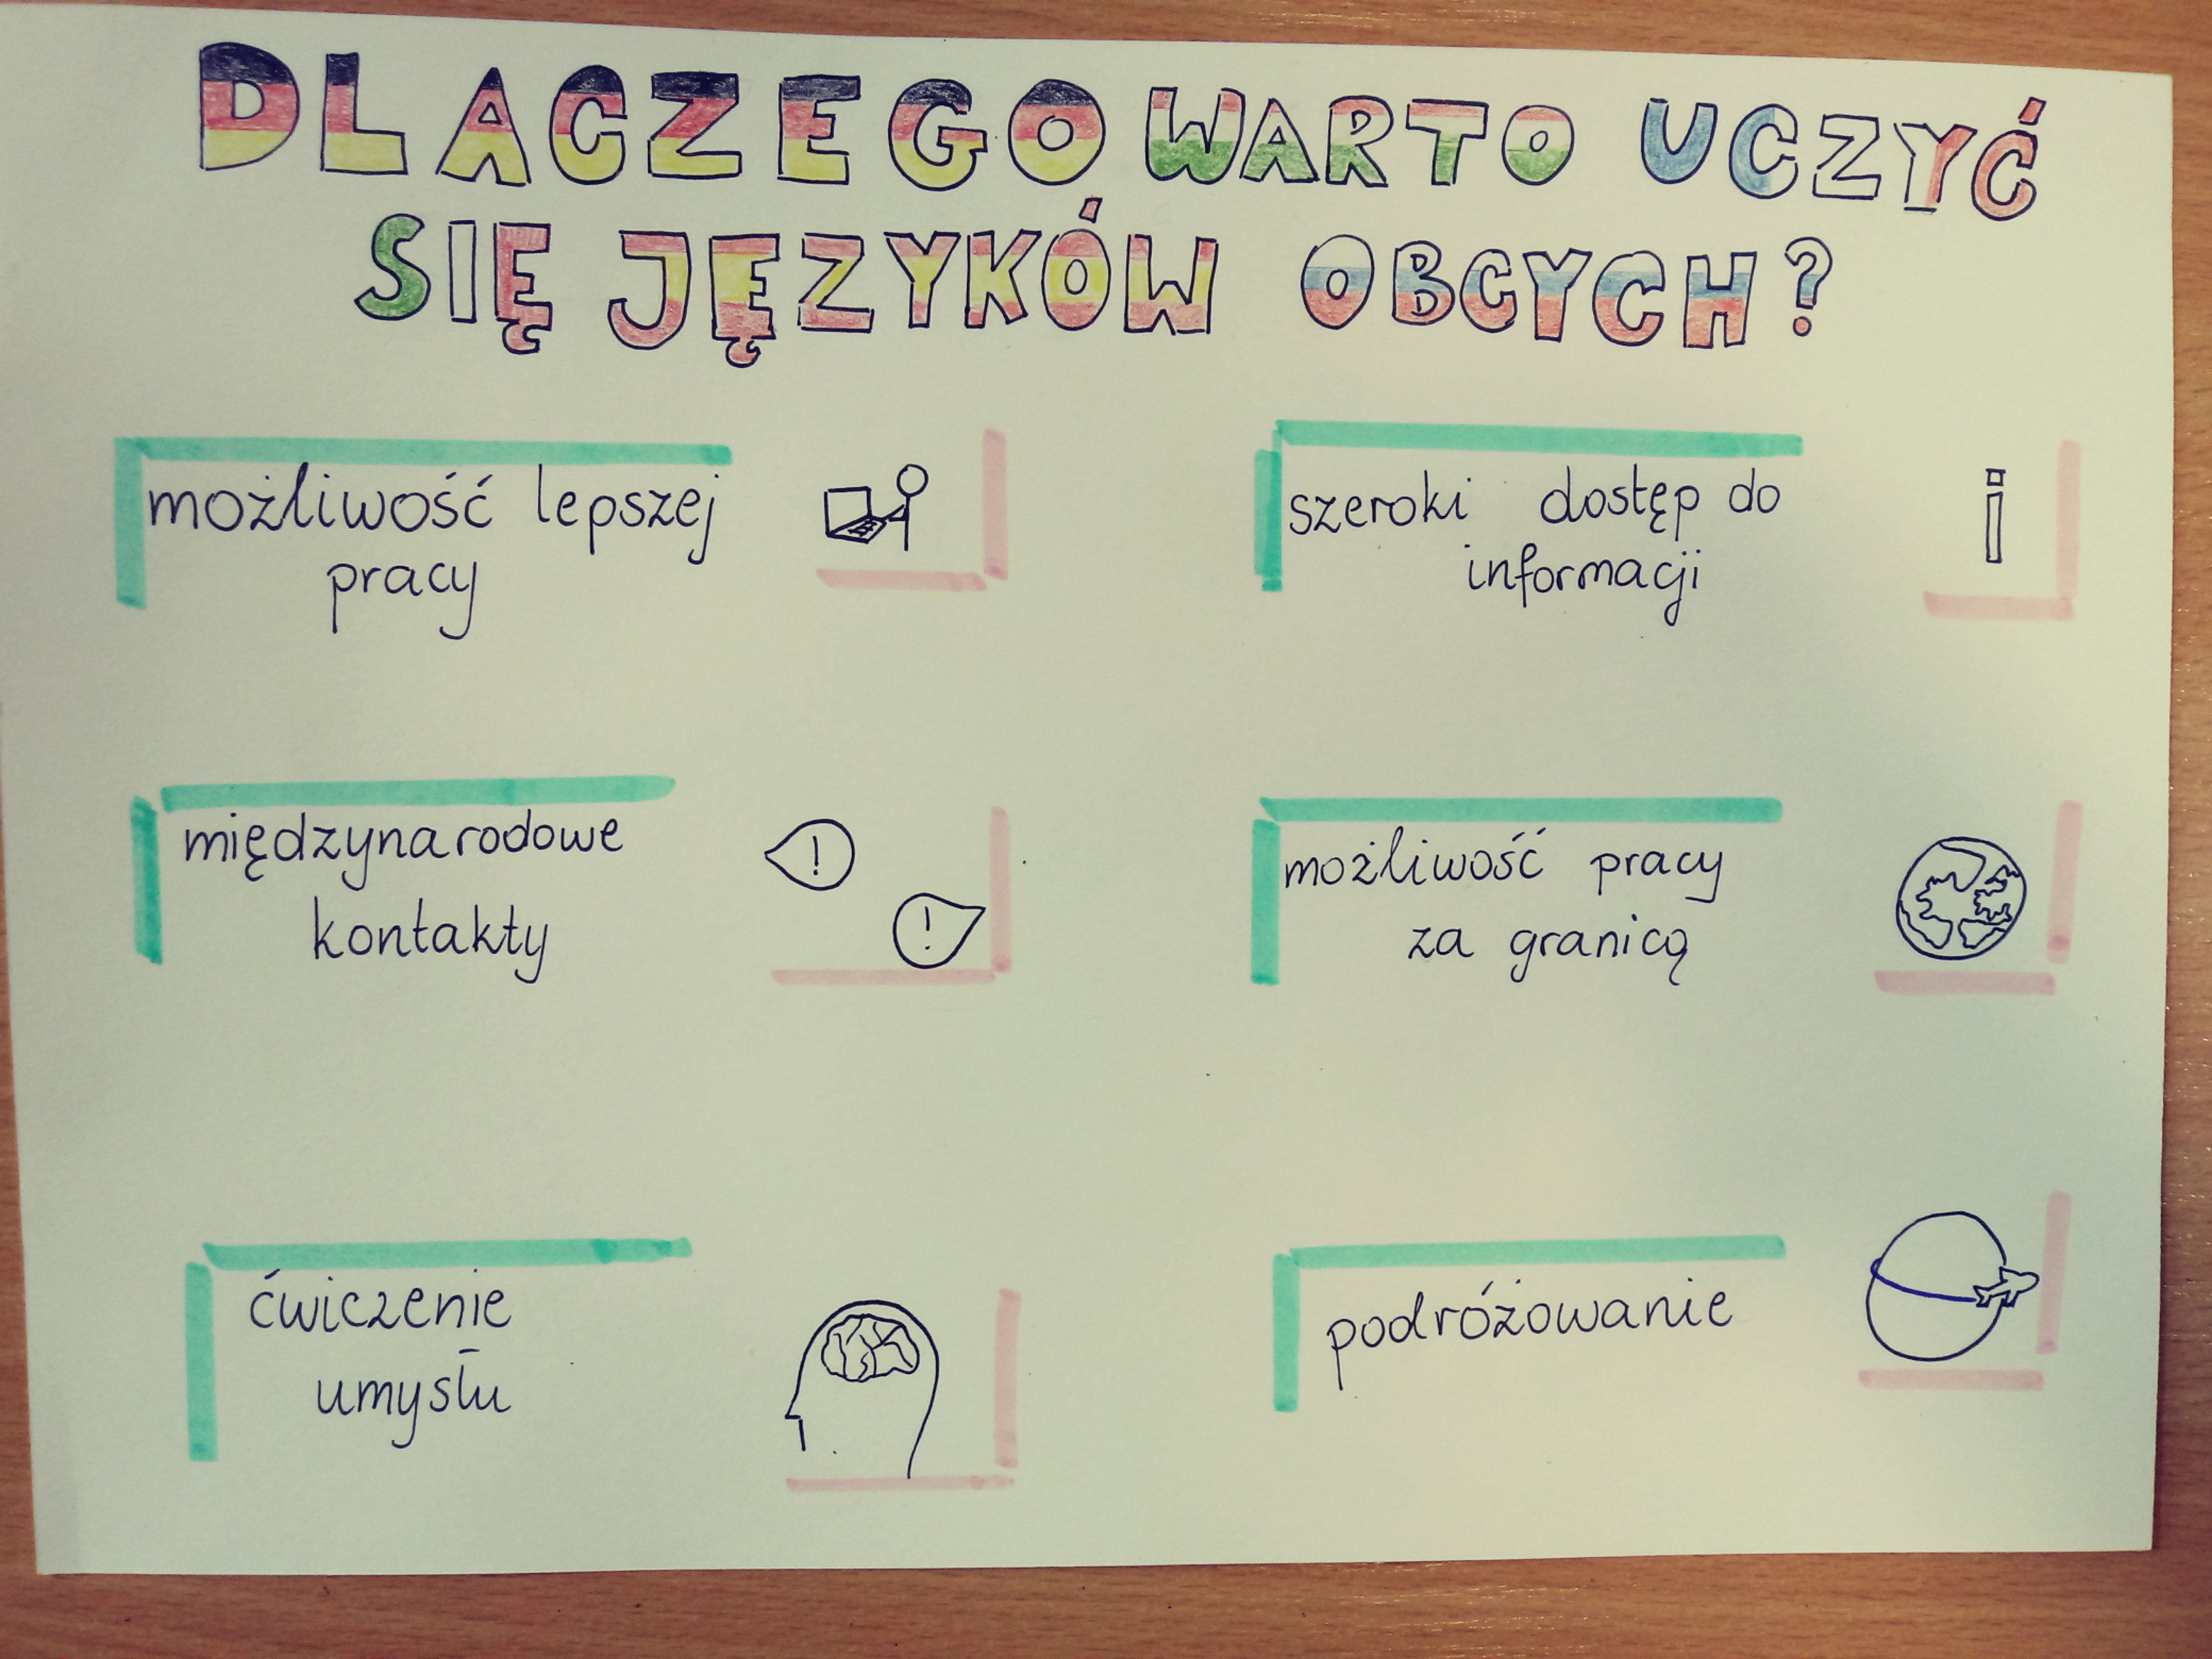 DLACZEGO WARTO UCZYĆ
SIĘ JĘZYKÓW OBCYCH?
możliwość lepszej
pracy
szeroki dostęp do
informacji
i
międzynarodowe
kontakty
!
!
możliwość pracy
za granicą
ćwiczenie
umysłu
podróżowanie